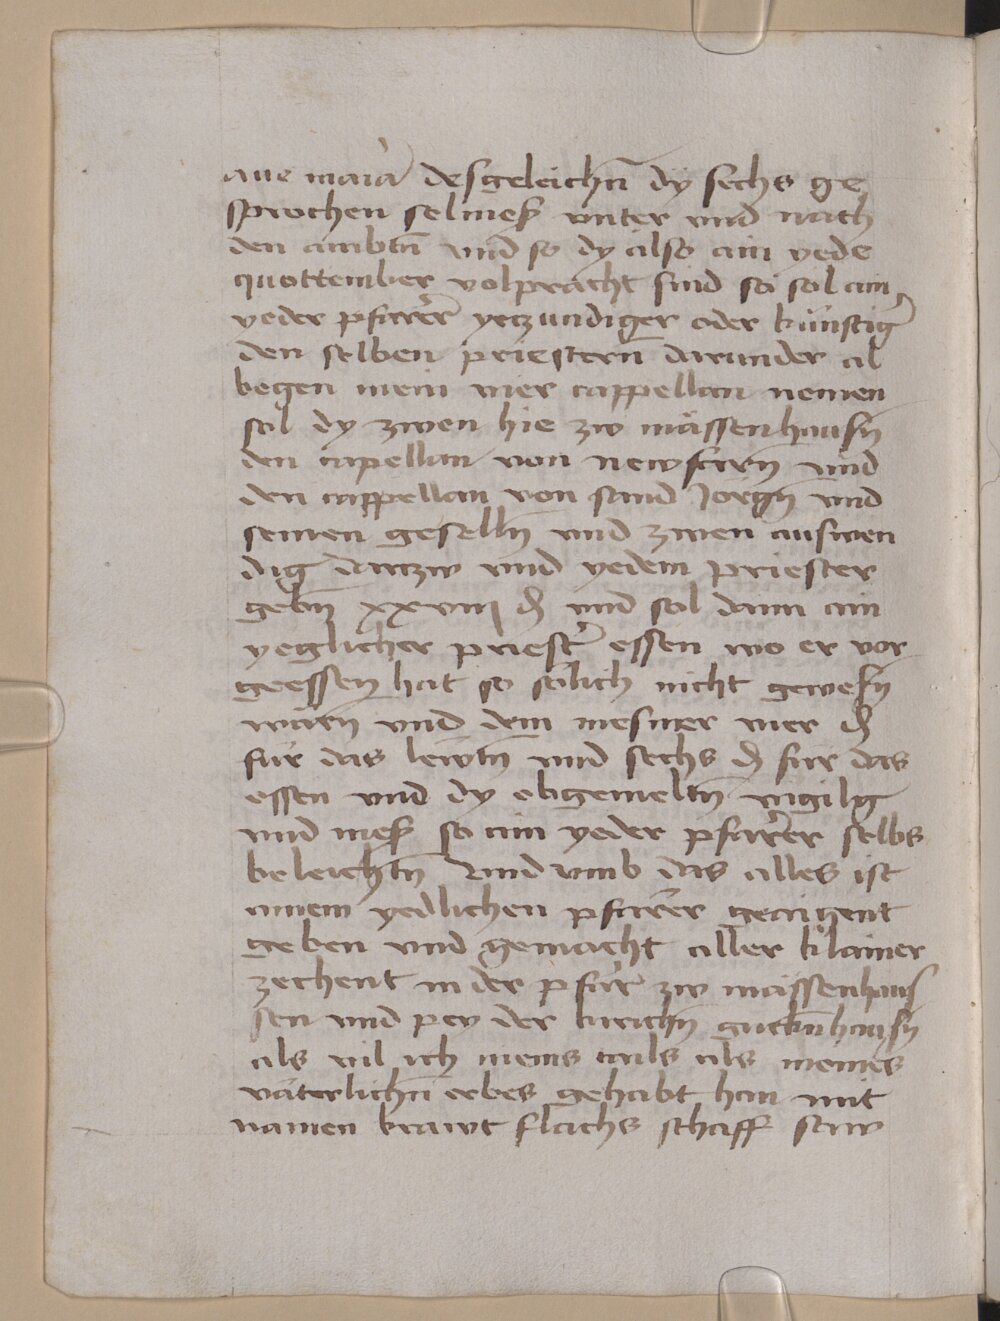 aue maria desgeleichn̄ dy sechs ge
sprochen selmeß vnter vnd nach
den ambtn̄ vnd so dy also ain yede
quottember volpracht sind so sol ain
yeder pfarrer yetzundiger oder künftig̕
den selben priestern̄ darunder al
begen mein vier cappellan nemen
sol dy zwen hie zw mässenhausn̄
den capellan von newfarn̄ vnd
den cappellan von sand Jörgn̄ vnd
seinen geselln̄ vnd zwen auswen
dig darczw vnd yedem priester
gebn̄ xxviiij ₰ vnd sol dann ain
yeglicher priest̕ essen wo er vor
geessen hat so sölich nicht gewesn̄
warn̄ vnd dem mesner vier ₰
für das lewtn̄ vnd sechs ₰ für das
essen vnd dy obgemeltn̄ vigilg
vnd meß so ain yeder pfarrer selbs
beleichtn̄ Vnd vmb das alles ist
ainem yedlichen pfarrer geaigent
geben vnd gemacht aller klainer
zechent in der pfarr zw mässenhaus
sen vnd pey der kirichn̄ gucknhausn̄
als vil ich meins tails als meines
väterlichn̄ erbes gehabt han mit
namen krawt flachs schaff saw